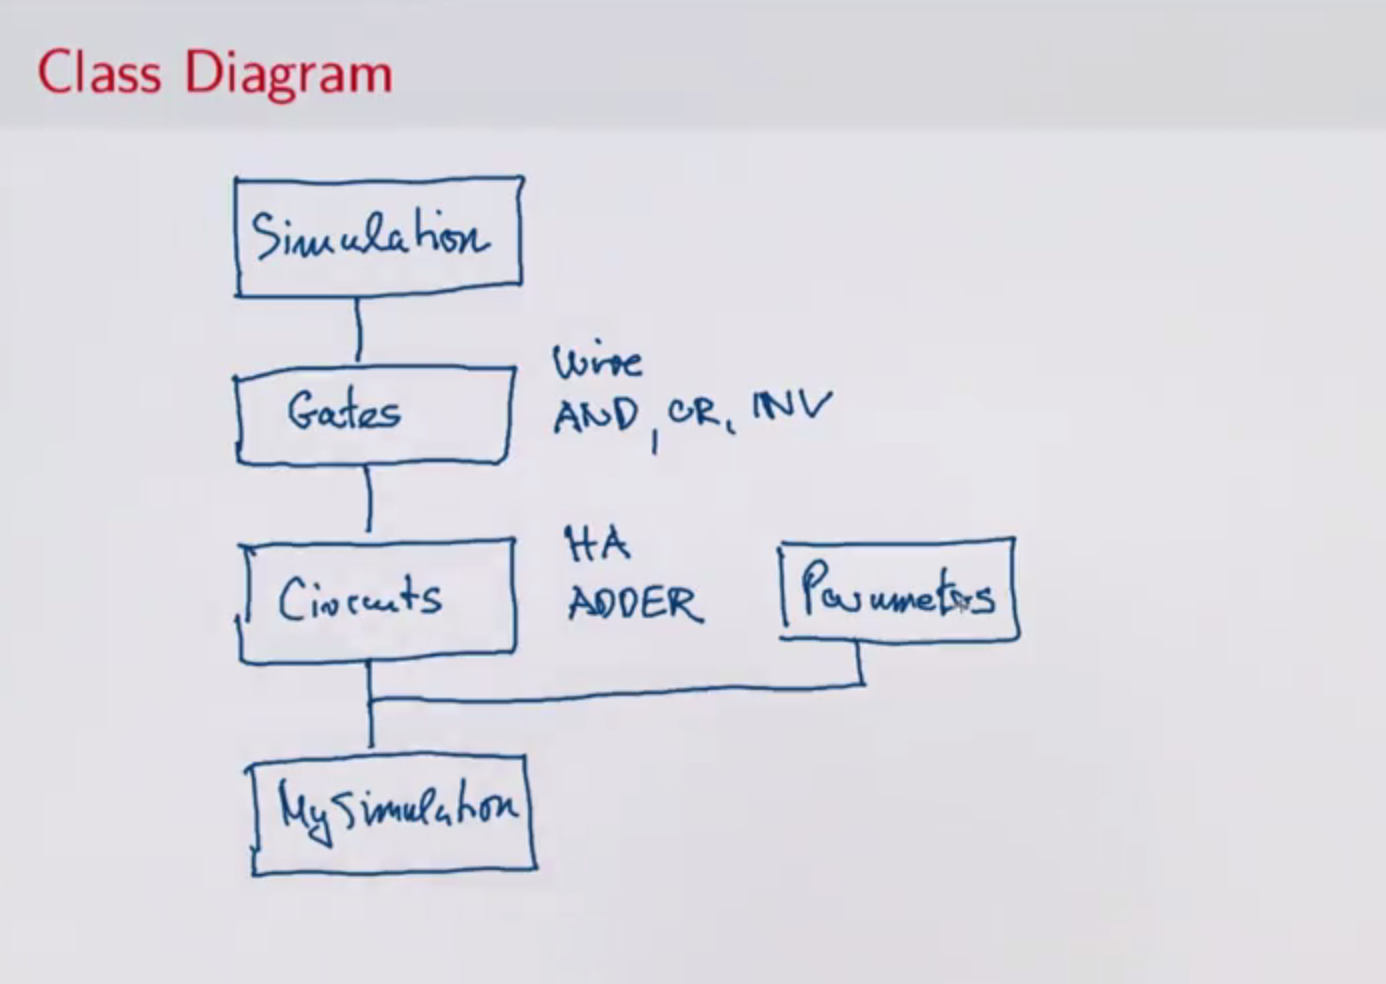 Class Diagram
Simulation
Gates
Wire
AND, OR, INV
Circuits
HA
ADDER
Parameters
MySimulation